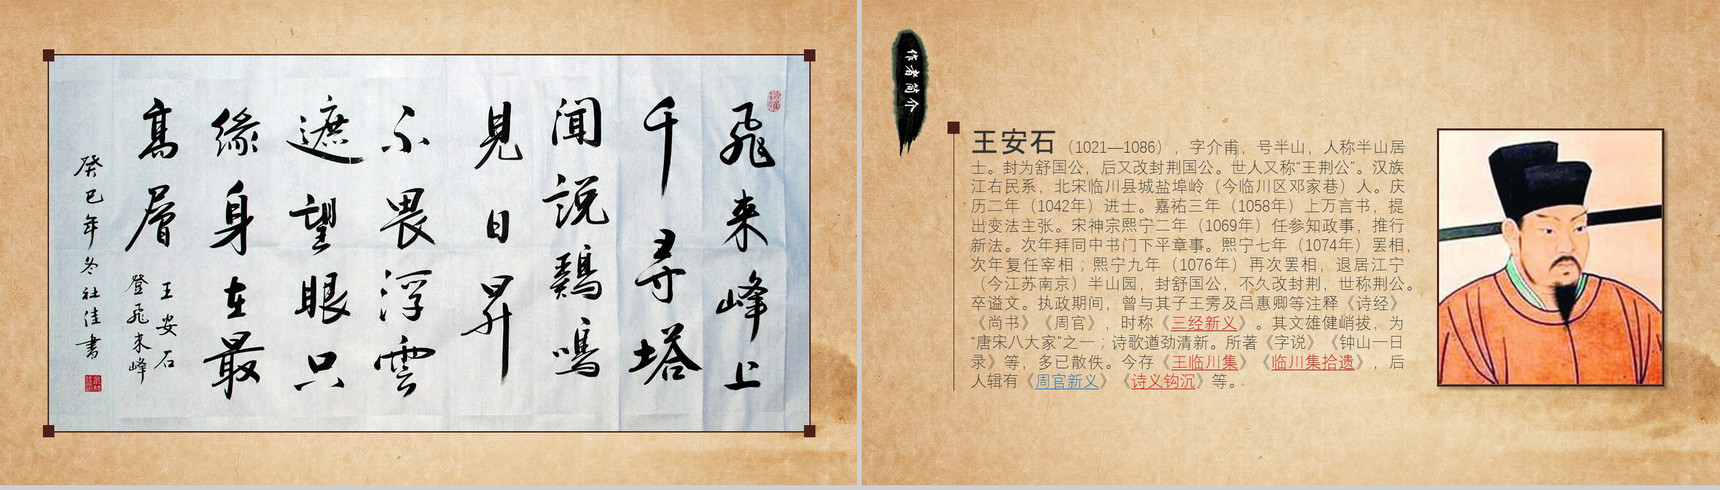 飛来峰上
千尋塔
聞説鷄鳴
見日昇
不畏浮雲
遮望眼只
緣身在最
高層
王安石
登飛来峰
癸巳年冬社佳書
作者简介
王安石（1021—1086），字介甫，号半山，人称半山居
士。封为舒国公，后又改封荆国公。世人又称“王荆公”。汉族
江右民系，北宋临川县城盐埠岭（今临川区邓家巷）人。庆
历二年（1042年）进士。嘉祐三年（1058年）上万言书，提
出变法主张。宋神宗熙宁二年（1069年）任参知政事，推行
新法。次年拜同中书门下平章事。熙宁七年（1074年）罢相，
次年复任宰相；熙宁九年（1076年）再次罢相，退居江宁
（今江苏南京）半山园，封舒国公，不久改封荆，世称荆公。
卒谥文。执政期间，曾与其子王雱及吕惠卿等注释《诗经》
《尚书》《周官》，时称《三经新义》。其文雄健峭拔，为
“唐宋八大家”之一；诗歌遒劲清新。所著《字说》《钟山一日
录》等，多已散佚。今存《王临川集》《临川集拾遗》，后
人辑有《周官新义》《诗义钩沉》等。